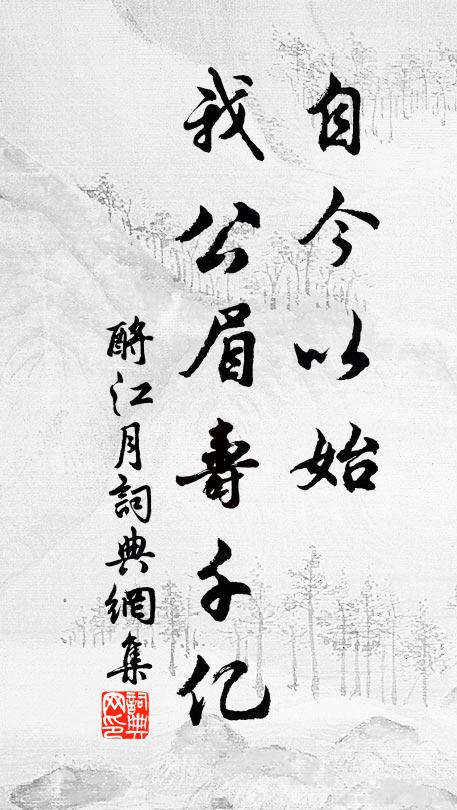 自今以始
我公眉寿千亿
酹江月詞典網集
詞典网印